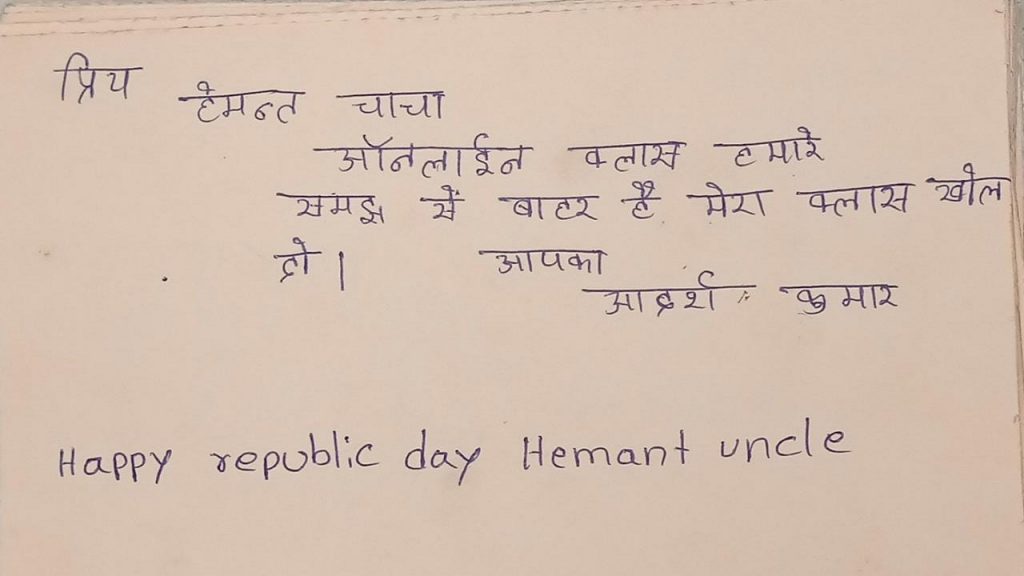 प्रिय
हेमन्त चाचा
ऑनलाईन क्लास हमारे
समझ सें बाहर है मेरा क्लास खोल
दो।  आपका
आदर्श कुमार
Happy republic day Hemant uncle